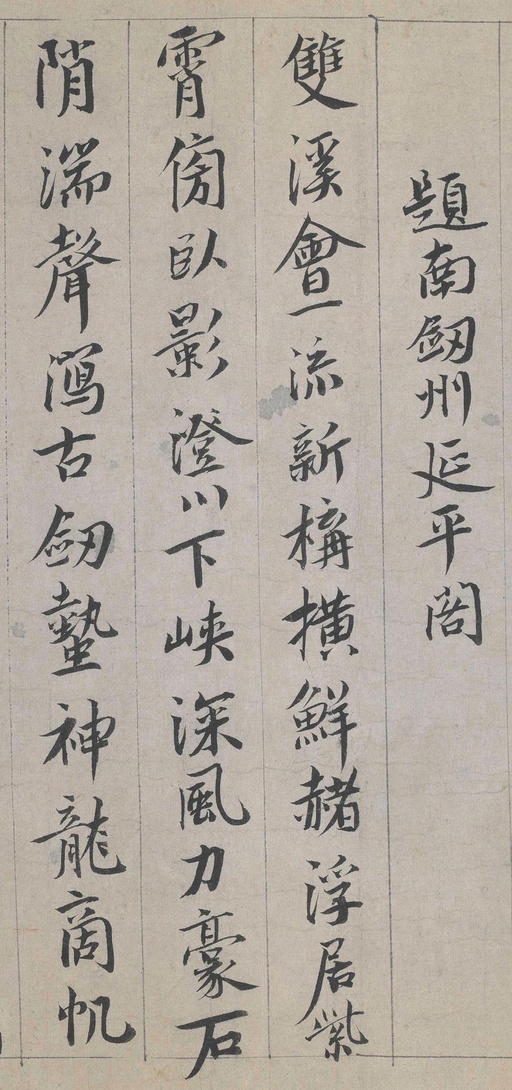 題南劒州延平閣
雙溪會一流新構橫鮮赭浮居紫
霄傍臥影澄川下峽深風力豪石
陗湍聲瀉古劒蟄神龍商帆